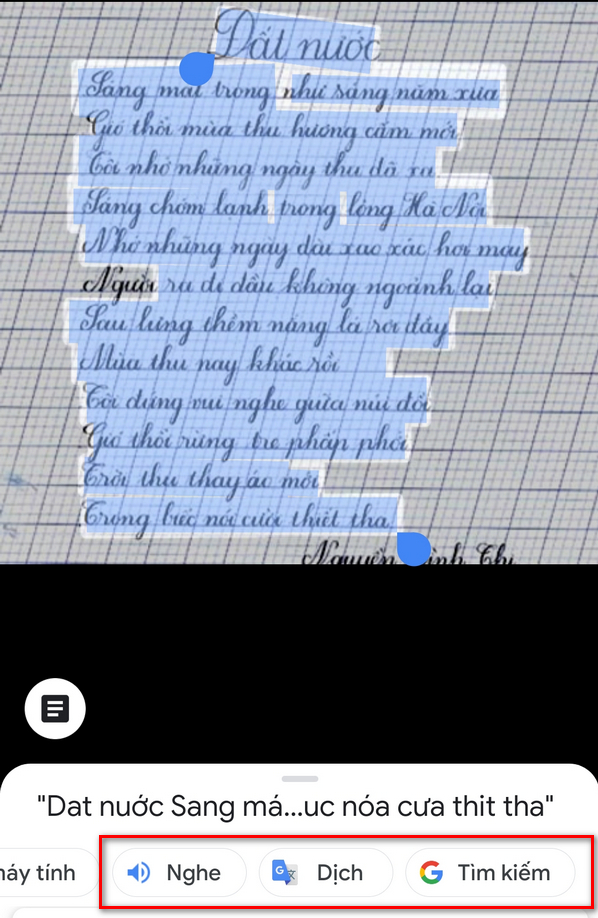 Đất nước
Sáng mát trong như sáng năm xưa
Gió thổi mùa thu hương cốm mới
Tôi nhớ những ngày thu đã xa
Sáng chớm lạnh trong lòng Hà Nội
Những ngày dài xao xác hơi may
Người ra đi đầu không ngoảnh lại
Sau lưng thềm nắng lá rơi đầy
Mùa thu nay khác rồi
Tôi đứng vui nghe giữa núi đồi
Gió thổi rừng tre phấp phới
Trời thu thay áo mới
Trong biếc nói cười thiết tha
Nguyễn Thi
"Dat nuớc Sang má...uc nóa cưa thit tha"
Nghe
Dịch
Tìm kiếm